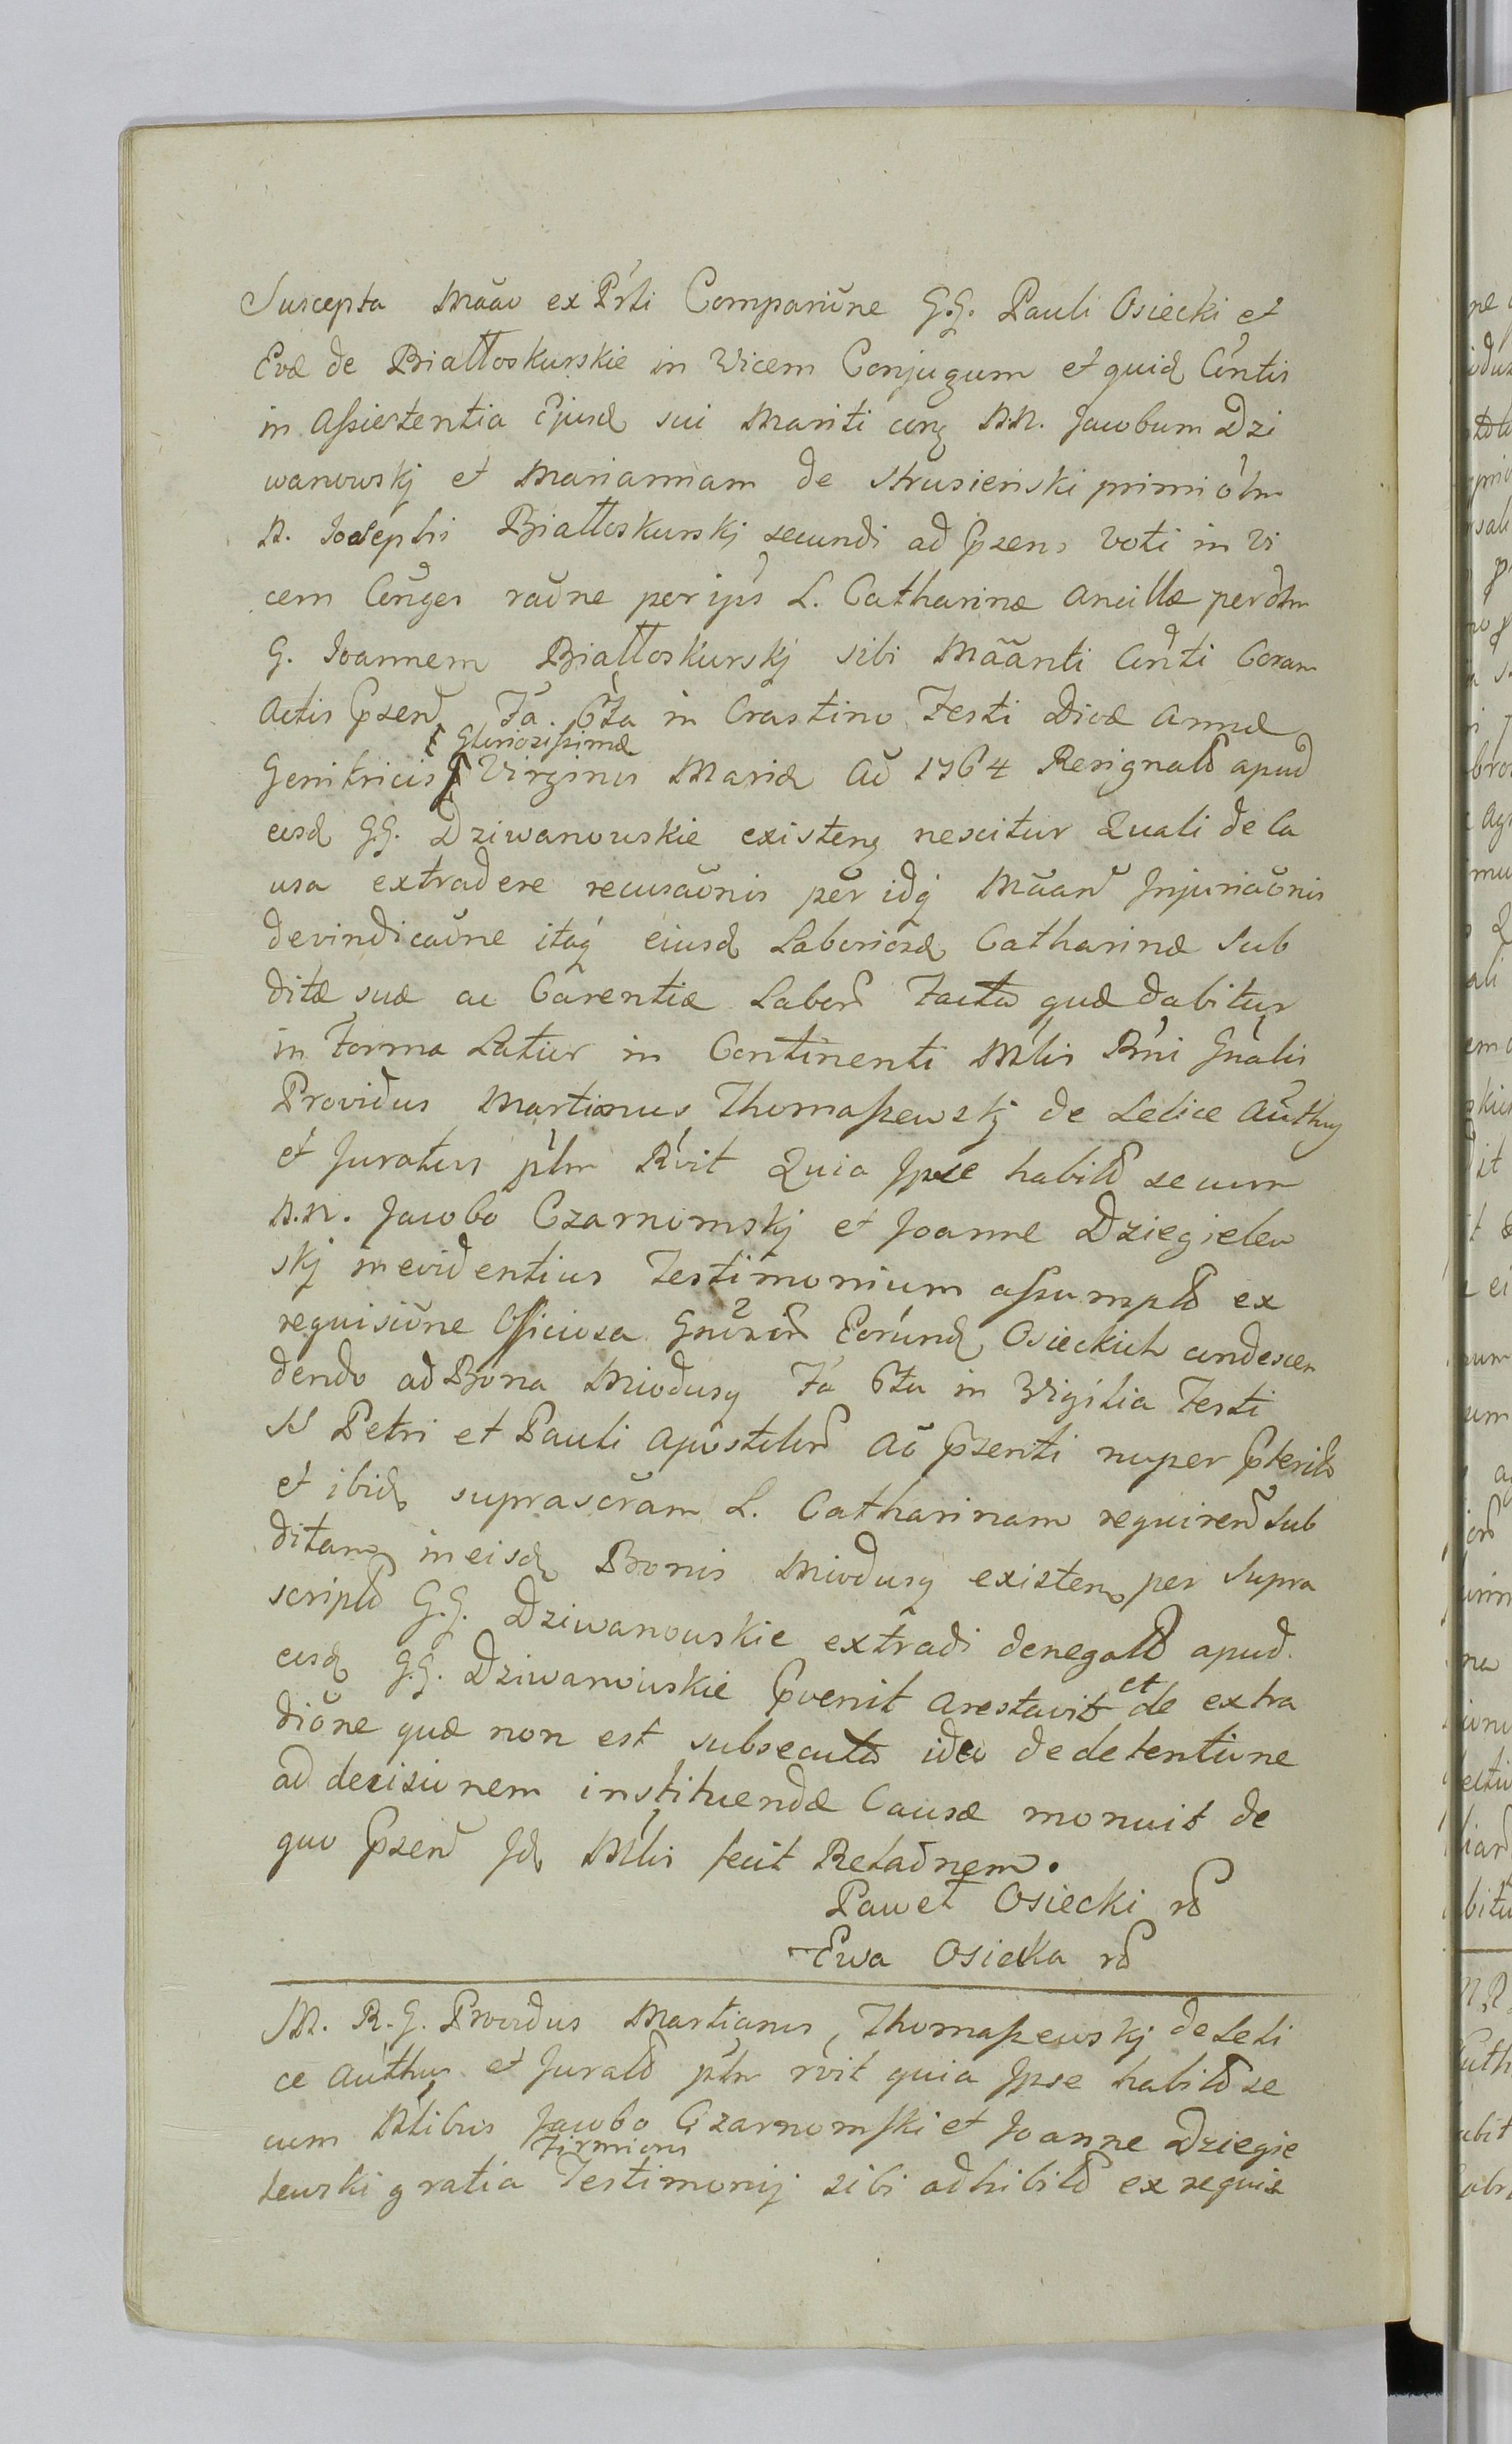 Suscepta Mãão ex Pr̃ti Compariõne G.G. Pauli Osiecki et
Evæ de Białłoskurskie in Vicem Conjugum et quid Cõntis
in Assistentia Ejusd sui Mariti conz N.N. Jacobum Dzi
wanowskj et Mariannam de Strusienski primi ólm
N. Josephi Białłoskurskj secundi ad Pzens voti in Vi
cem Cõnges raõne per ips L. Catharinæ Ancillæ per ólm
G. Joannem Białłoskurskj sibi Mããnti Cõnti Coram
Actis Pzenď Fa. 6ta in Crastino Festi Divæ Annæ
Gloriosissimæ
Genitricis Virginis Mariæ Aõ 1764 Resignatæ apud
eosd GG. Dziwanowskie existenz nescitur Quali de Ca
usa extradere recusaõnis per idq Mãan Injuriaõnis
devindicaõne itaq eiusd Laboriosæ Catharinæ Sub
ditæ suæ ac Carentiæ Labor Facta quæ dabitur
in Forma Latior in Continenti Mlis Rńi Gnalis
Providus Martianus Thomaszewskj de Lelice Auth
et Juratus pĺm Rvit Quia Jpse habitis secum
N.N. Jacobo Czarnomskj et Joanne Dziegielew
skj in evidentius Testimonium assumptis ex
requisiõne Officiosa Gnõzor Eorund Osieckich condescen
dendo ad Bona Miodusy Fa 6ta in Vigilia Festi
SS Petri et Pauli Apostolor Aõ Pzenti nuper Pterito
et ibid suprascram L. Catharinam requirenď Sub
ditam in eisd Bonis Miodusy existen per Supra
scriptos G.G. Dziwanowskie extradi denegatæ apud
eosd G.G. Dziwanowskie Pvenit Arestavit et de extra
diõne quæ non est subsecuta ideo de detentione
ad decisionem instituendæ Causæ monuit de
quo Pzenď Jd Mlis fecit Relaõnem.
Paweł Osiecki
Ewa Osiecka
M. R. G. Providus Martianus Thomaszewskj de Leli
ce Auth et Jurats pĺm rvit quia Jpse habitis se
cum Nlibus Jacobo Czarnomski et Joanne Dziegie
Firmioris
lewski gratia Testimonij sibi adhibitis ex requis